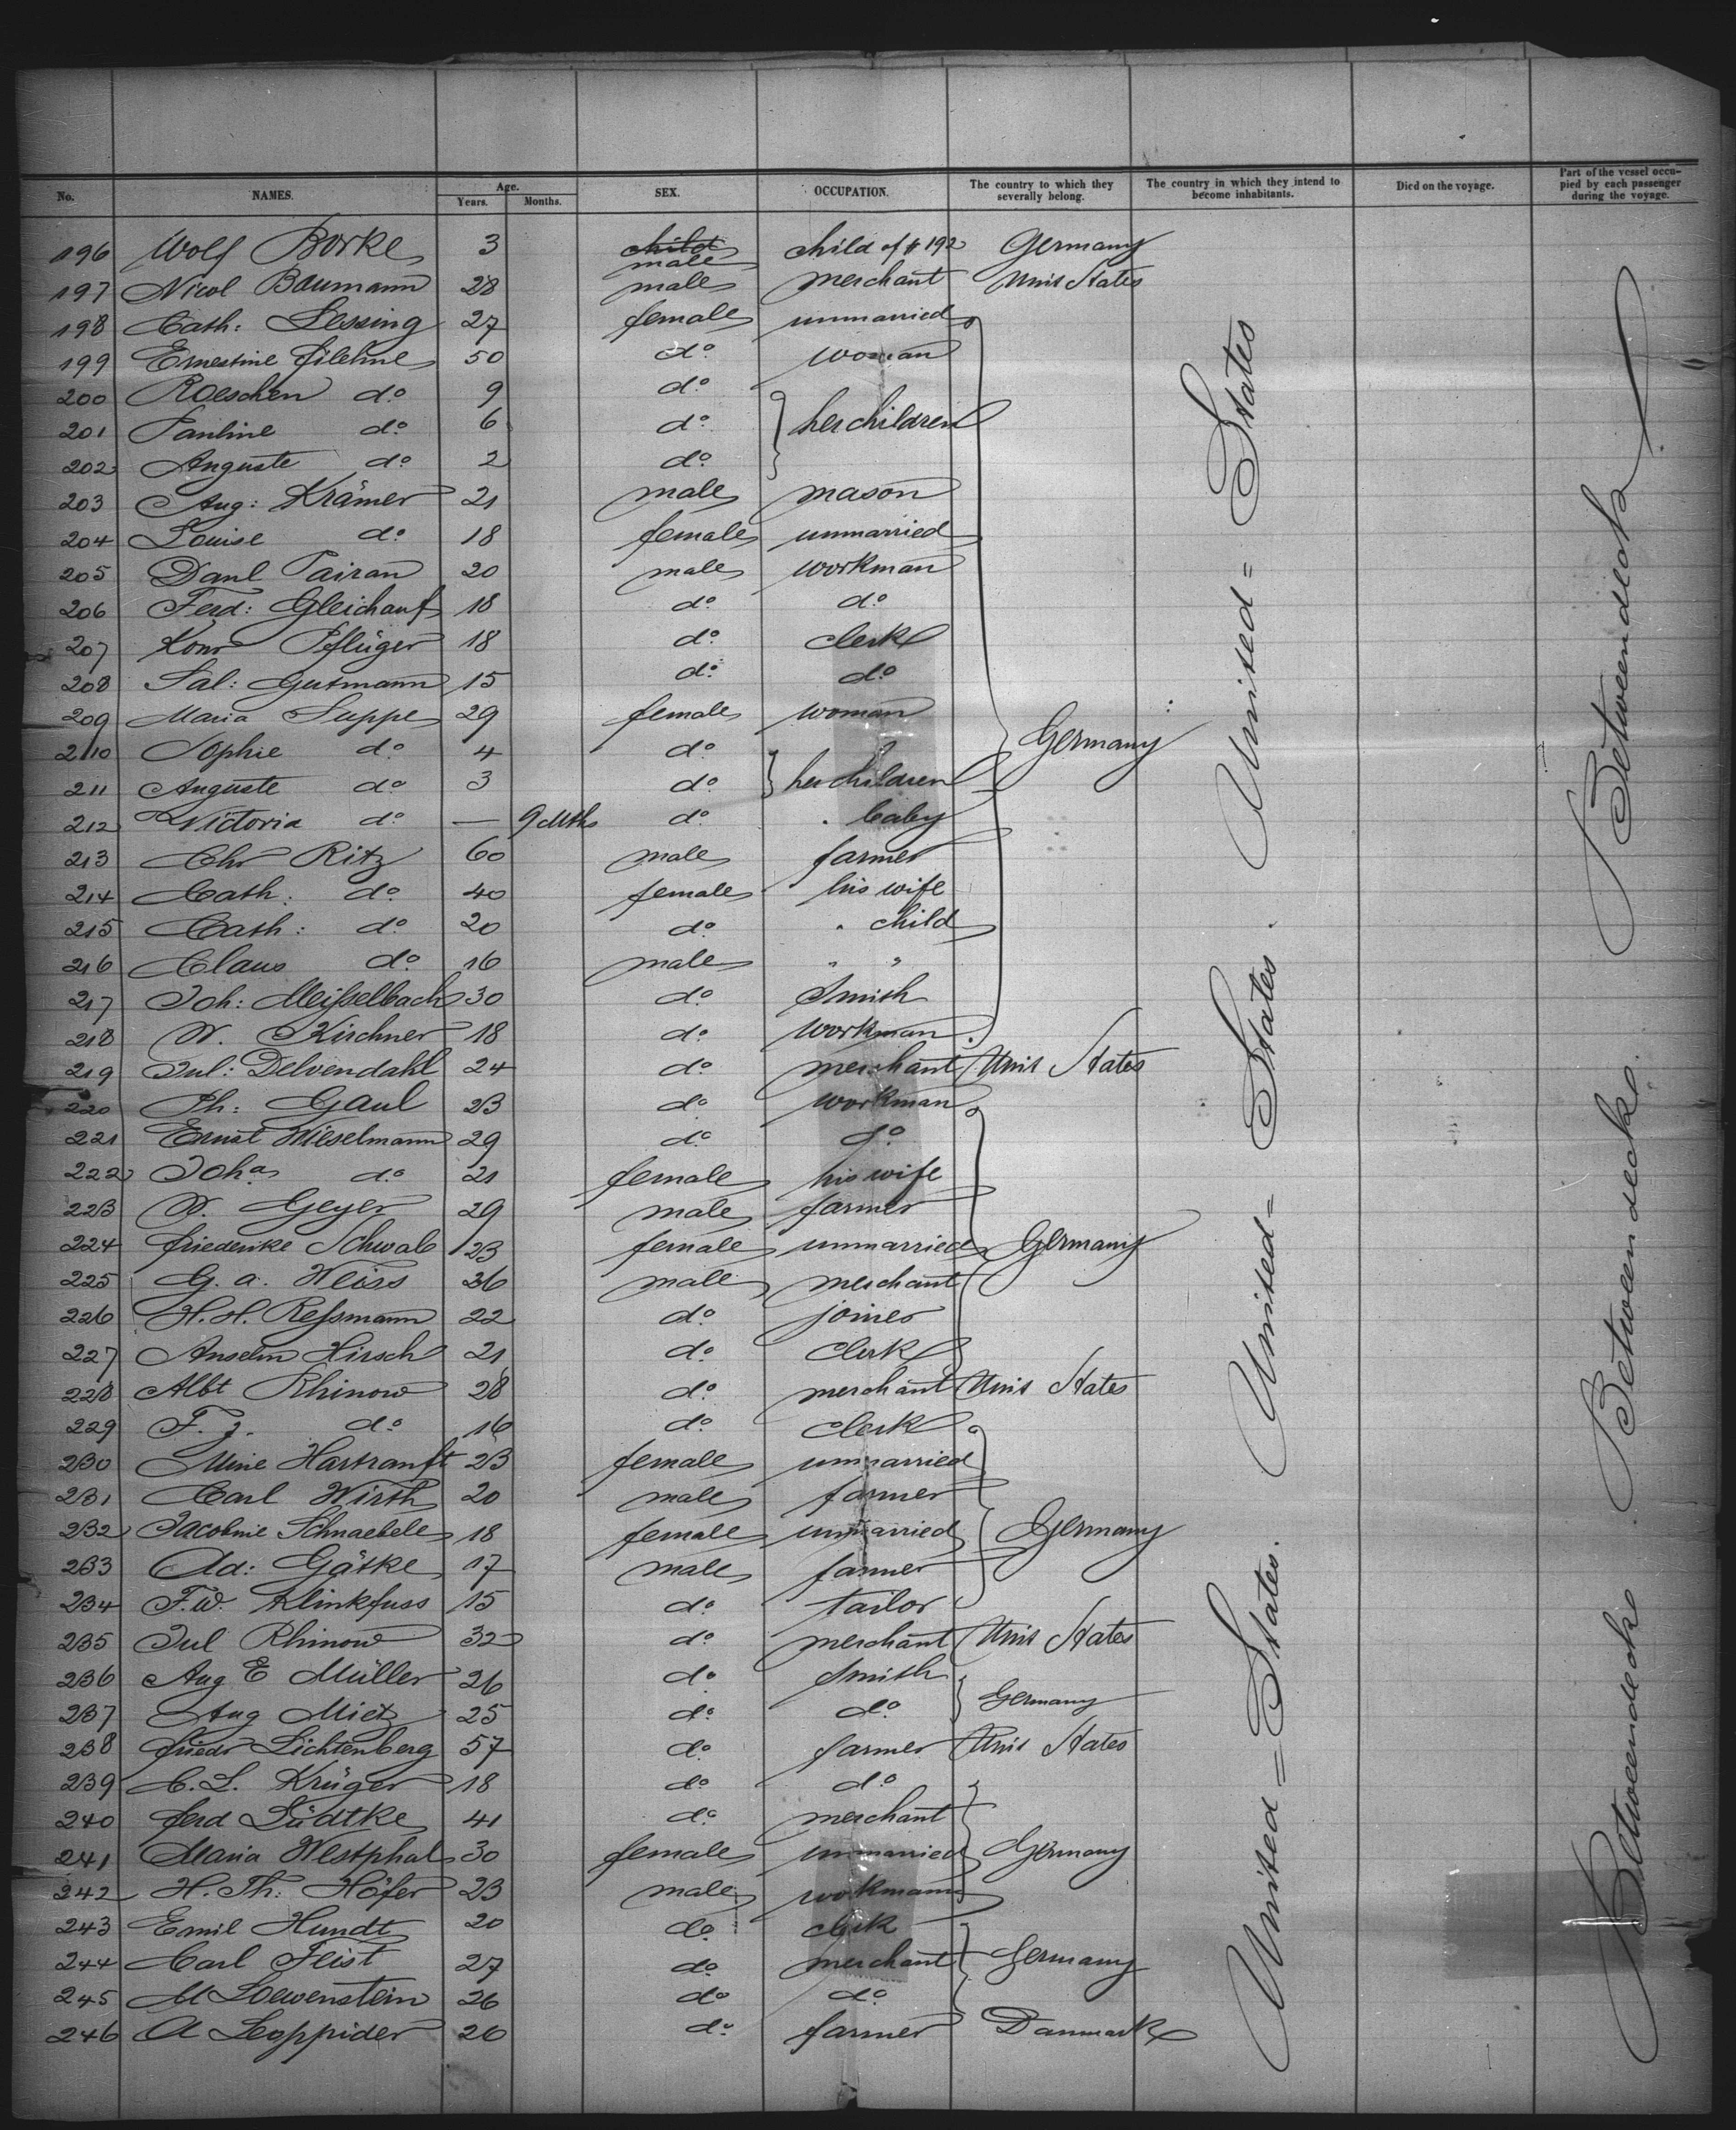 No. NAMES. Age. Years. Months. SEX. OCCUPATION. The country to which they severally belong. The country in which they intend to become inhabitants. Died on the voyage. Part of the vessel occupied by each passenger during the voyage.
196 Wolf Borke 3 child male child of # 192 Germany
197 Nicol Baumann 28 male merchant Unit States
198 Cath: Lessing 27 female unmarried
199 Ernestine Filehne 50 do woman
200 Roeschen do 9 do
201 Pauline do 6 do her children
202 Auguste do 2 do
203 Aug: Krämer 21 male mason
204 Louise do 18 female unmarried
205 Danl Pairan 20 male workman
206 Ferd: Gleichauf 18 do do
207 Konr Pflüger 18 do clerk
208 Sal: Gutmann 15 do do
209 Maria Suppe 29 female woman Germany
210 Sophie do 4 do
211 Auguste do 3 do her children
212 Victoria do — 9 Mths do " baby
213 Chr Ritz 60 male farmer
214 Cath: do 40 female his wife
215 Cath: do 20 do " child
216 Claus do 16 male " "
217 Joh: Meißelbach 30 do Smith
218 W. Kirchner 18 do workman
219 Jul: Delvendahl 24 do merchant Unit States
220 Ph: Gaul 23 do workman
221 Ernst Wieselmann 29 do do
222 Joha do 21 female his wife
223 W. Geyer 29 male farmer
224 Friederike Schwab 23 female unmarried Germany
225 G. A. Weiss 36 male merchant
226 H. H. Reßmann 22 do joiner
227 Anselm Hirsch 21 do clerk
228 Albt Rhinow 28 do merchant Unit States
229 F. J. do 16 do clerk
230 Mine Hartranft 23 female unmarried
231 Carl Wirth 20 male farmer
232 Jacobine Schnaebele 18 female unmarried Germany
233 Ad: Gätke 17 male farmer
234 F. W. Klinkfuss 15 do tailor
235 Jul Rhinow 32 do merchant Unit States
236 Aug E Müller 26 do Smith
237 Aug Mietz 25 do do Germany
238 Friedr Lichtenberg 57 do farmer Unit States
239 C. L. Krüger 18 do do
240 Ferd Lüdtke 41 do merchant
241 Maria Westphal 30 female unmarried Germany
242 H. Th: Höfer 23 male workmann
243 Emil Hundt 20 do clerk
244 Carl Feist 27 do merchant Germany
245 M Loewenstein 26 do do
246 A Leoppider 26 do farmer Danmark
United = States. United = States. United = States
Betweendecks. Betweendecks. Betweendecks